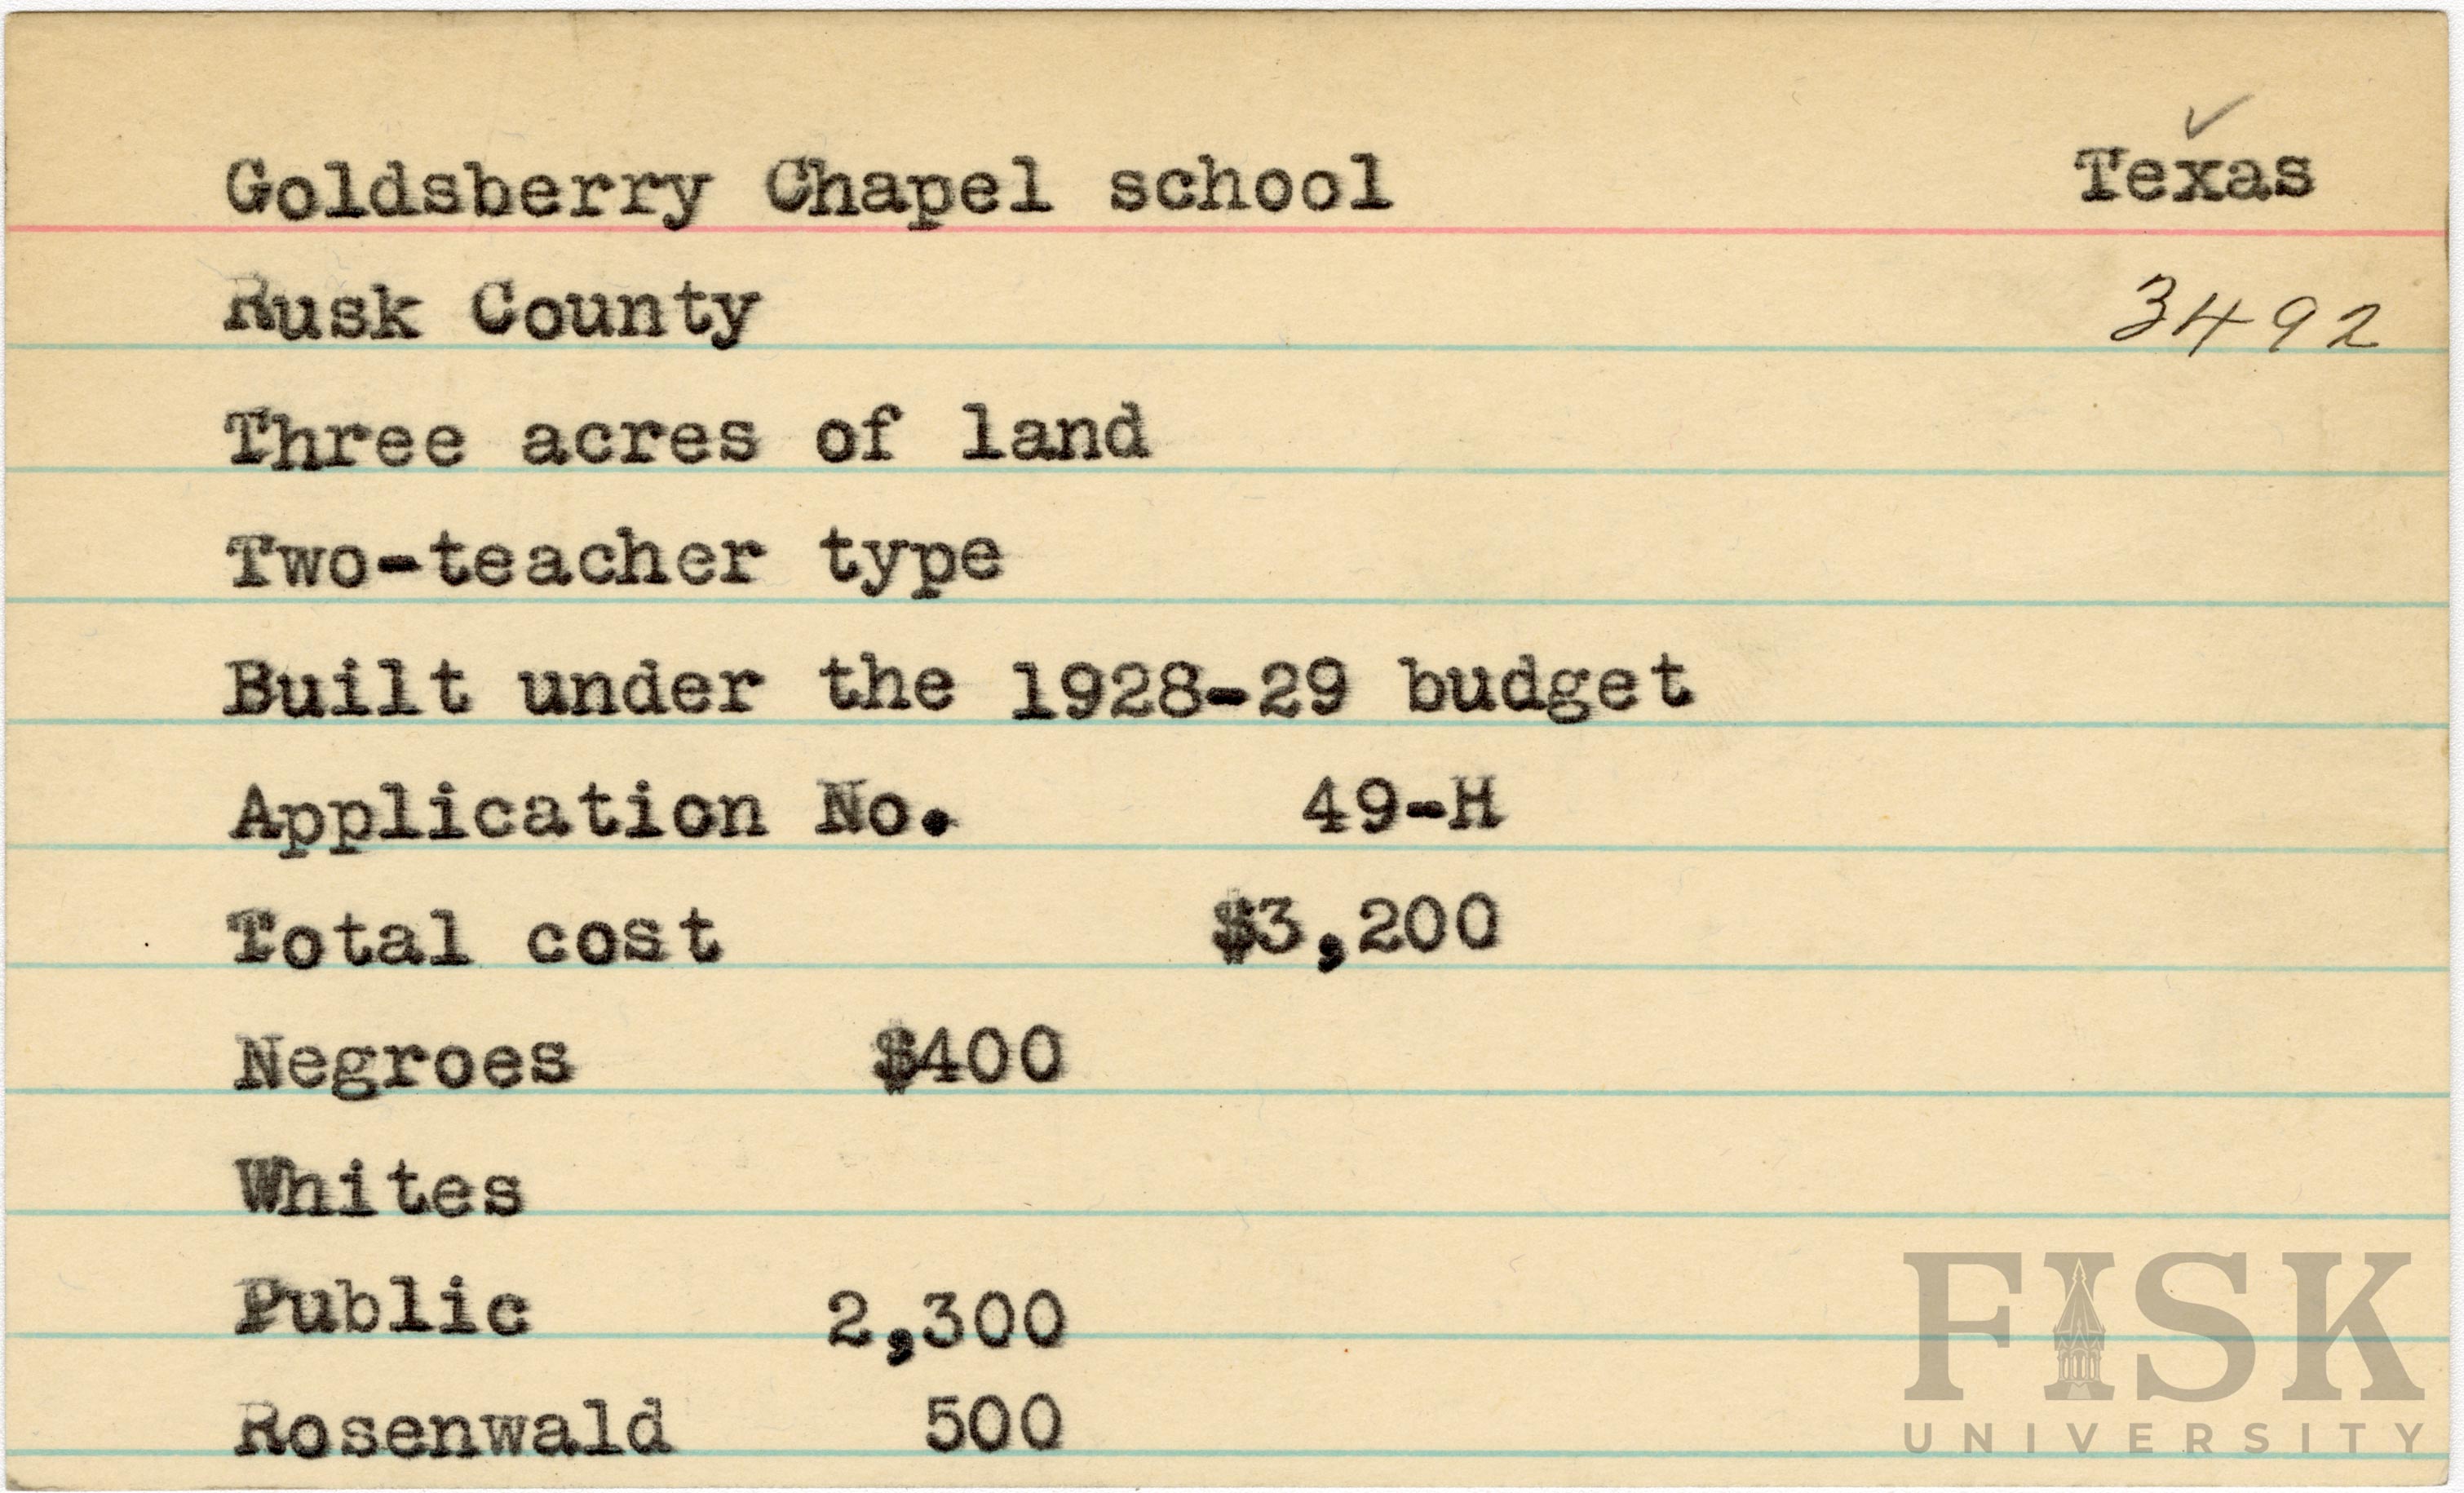 Goldsberry Chapel school Texas
Rusk County 3492
Three acres of land
Two-teacher type
Built under the 1928-29 budget
Application No. 49-H
Total cost $3,200
Negroes $400
Whites
Public 2,300
Rosenwald 500
FISK
UNIVERSITY